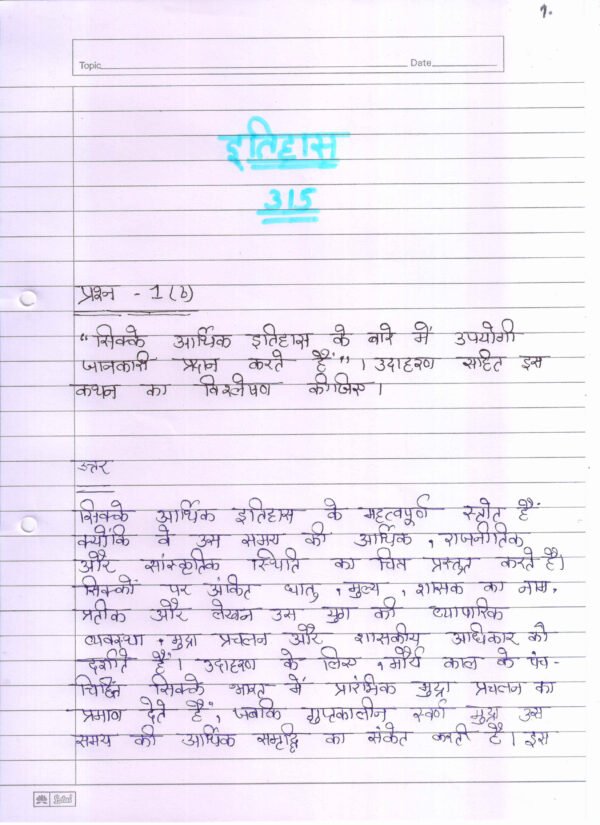 1.
Topic
Date
इतिहास
315
प्रश्न - 1(b)
"सिक्के आर्थिक इतिहास के बारे में उपयोगी
जानकारी प्रदान करते हैं"। उदाहरण सहित इस
कथन का विश्लेषण कीजिए।
उत्तर
सिक्के आर्थिक इतिहास के महत्वपूर्ण स्त्रोत हैं
क्योंकि वे उस समय की आर्थिक, राजनीतिक
और सांस्कृतिक स्थिति का चित्र प्रस्तुत करते हैं।
सिक्कों पर अंकित धातु, मूल्य, शासक का नाम,
प्रतीक और लेखन उस युग की व्यापारिक
व्यवस्था, मुद्रा प्रचलन और शासकीय अधिकार को
दर्शाते हैं। उदाहरण के लिए, मौर्य काल के पंच-
चिह्नित सिक्के भारत में प्रारंभिक मुद्रा प्रचलन का
प्रमाण देते हैं, जबकि गुप्तकालीन स्वर्ण मुद्रा उस
समय की आर्थिक समृद्धि का संकेत करती हैं। इस